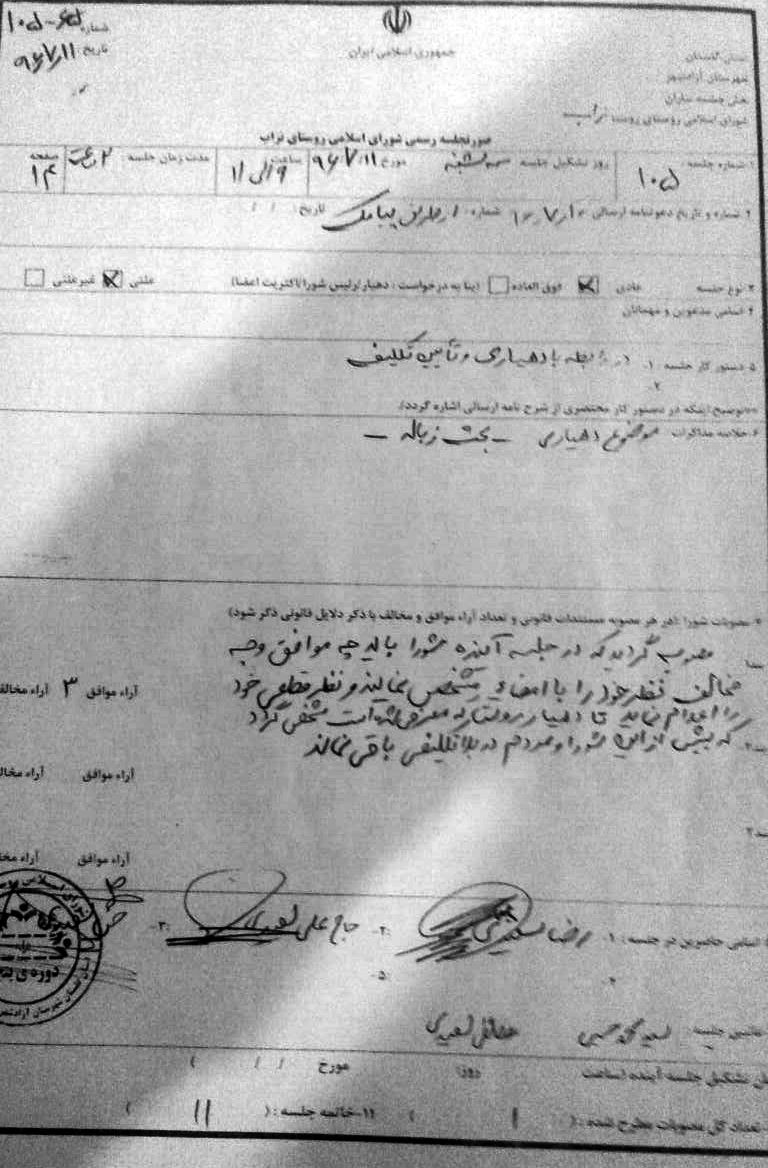 جمهوری اسلامی ایران
شماره
تاریخ: ۹۶/۷/۱۱
استان گلستان
شهرستان آزادشهر
بخش چشمه ساران
شورای اسلامی روستای تراب
صورتجلسه رسمی شورای اسلامی روستای تراب
۱-شماره جلسه: روز تشکیل جلسه سه شنبه مورخ ۹۶/۷/۱۱ ساعت ۹ الی ۱۱ مدت زمان جلسه: ۲ ساعت صفحه ۱۴
۲-شماره و تاریخ دعوتنامه ارسالی شماره: از طریق پیامک تاریخ: / /
۳-نوع جلسه عادی فوق العاده (بنا به درخواست: دهیار/رئیس شورا/اکثریت اعضا) علنی غیرعلنی
۴-اسامی مدعوین و مهمانان
۵-دستور کار جلسه: ۱. در رابطه با دهیاری و تکلیف
۲.
**توضیح اینکه در دستور کار مختصری از شرح نامه ارسالی اشاره گردد).
۶-خلاصه مذاکرات: موضوع دهیاری - بحث زباله -
۷-مصوبات شورا (در هر مصوبه مستندات قانونی و تعداد آراء موافق و مخالف با ذکر دلایل قانونی ذکر شود)
مصوب گردید که در جلسه آینده شورا باید چه موافق و چه
مخالف نظر خود را با امضاء مشخص نمایند و نظر قطعی خود
را اعلام نماید تا دهیار روستا که معرفی شده است مشخص گردد
که بیش از این شورا و مردم در بلاتکلیفی باقی نماند
آراء موافق ۳ آراء مخالف
آراء موافق آراء مخالف
آراء موافق آراء مخالف
اسامی حاضرین در جلسه: ۱. رضا ۲. حاج علی سعیدی ۳.
۵.
غائبین جلسه:
زمان تشکیل جلسه آینده (ساعت روز) مورخ / / )
تعداد کل مصوبات مطرح شده: ( ۱ ) ۱۱-خاتمه جلسه: ( ۱۱ )